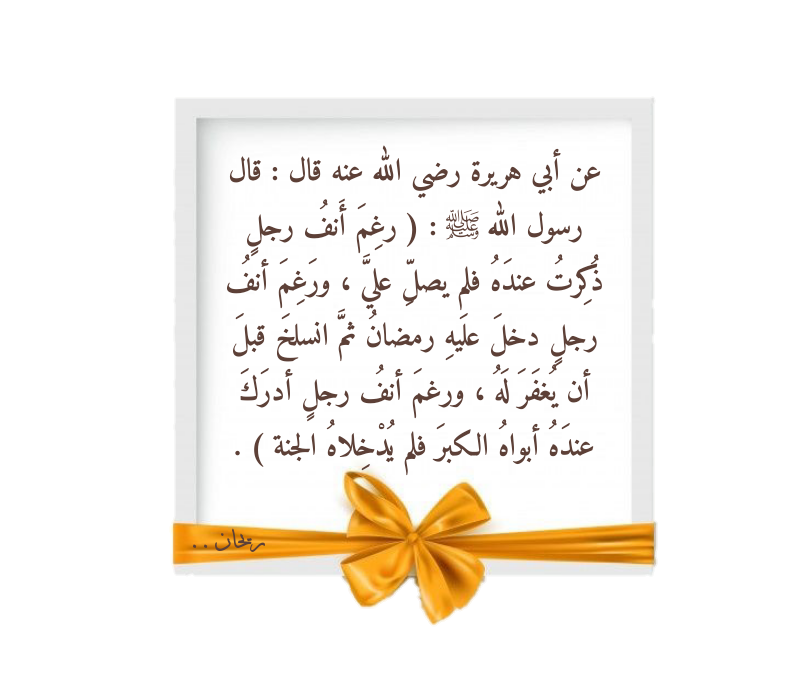 عن أبي هريرة رضي الله عنه قال : قال
رسول الله ﷺ : ( رغِمَ أَنفُ رجلٍ
ذُكِرتُ عندَهُ فلم يصلِّ عليَّ ، ورَغِمَ أنفُ
رجلٍ دخلَ علَيهِ رمضانُ ثمَّ انسلخَ قبلَ
أن يُغفَرَ لَهُ ، ورغمَ أنفُ رجلٍ أدرَكَ
عندَهُ أبواهُ الكبرَ فلم يُدْخِلاهُ الجنة ) .
ريحان . .